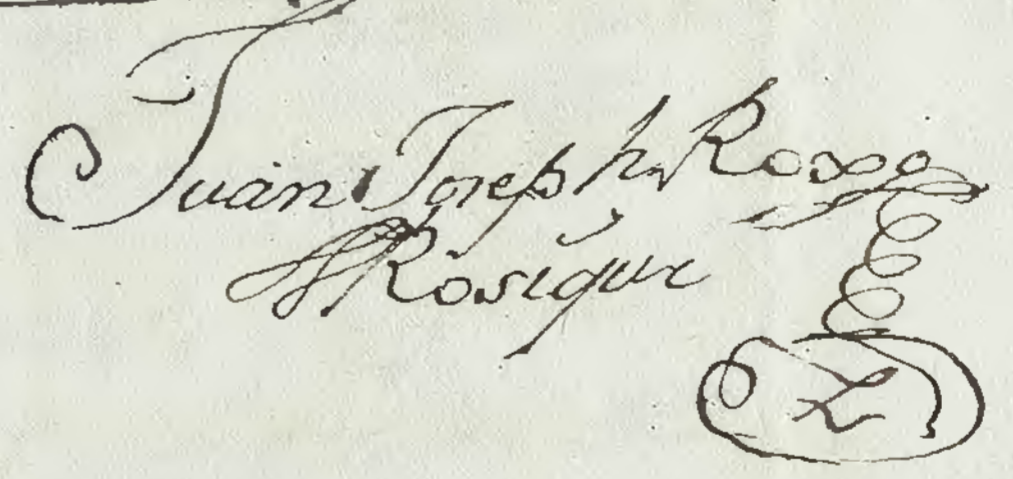 Juan Joseph Roxo
y Rosique